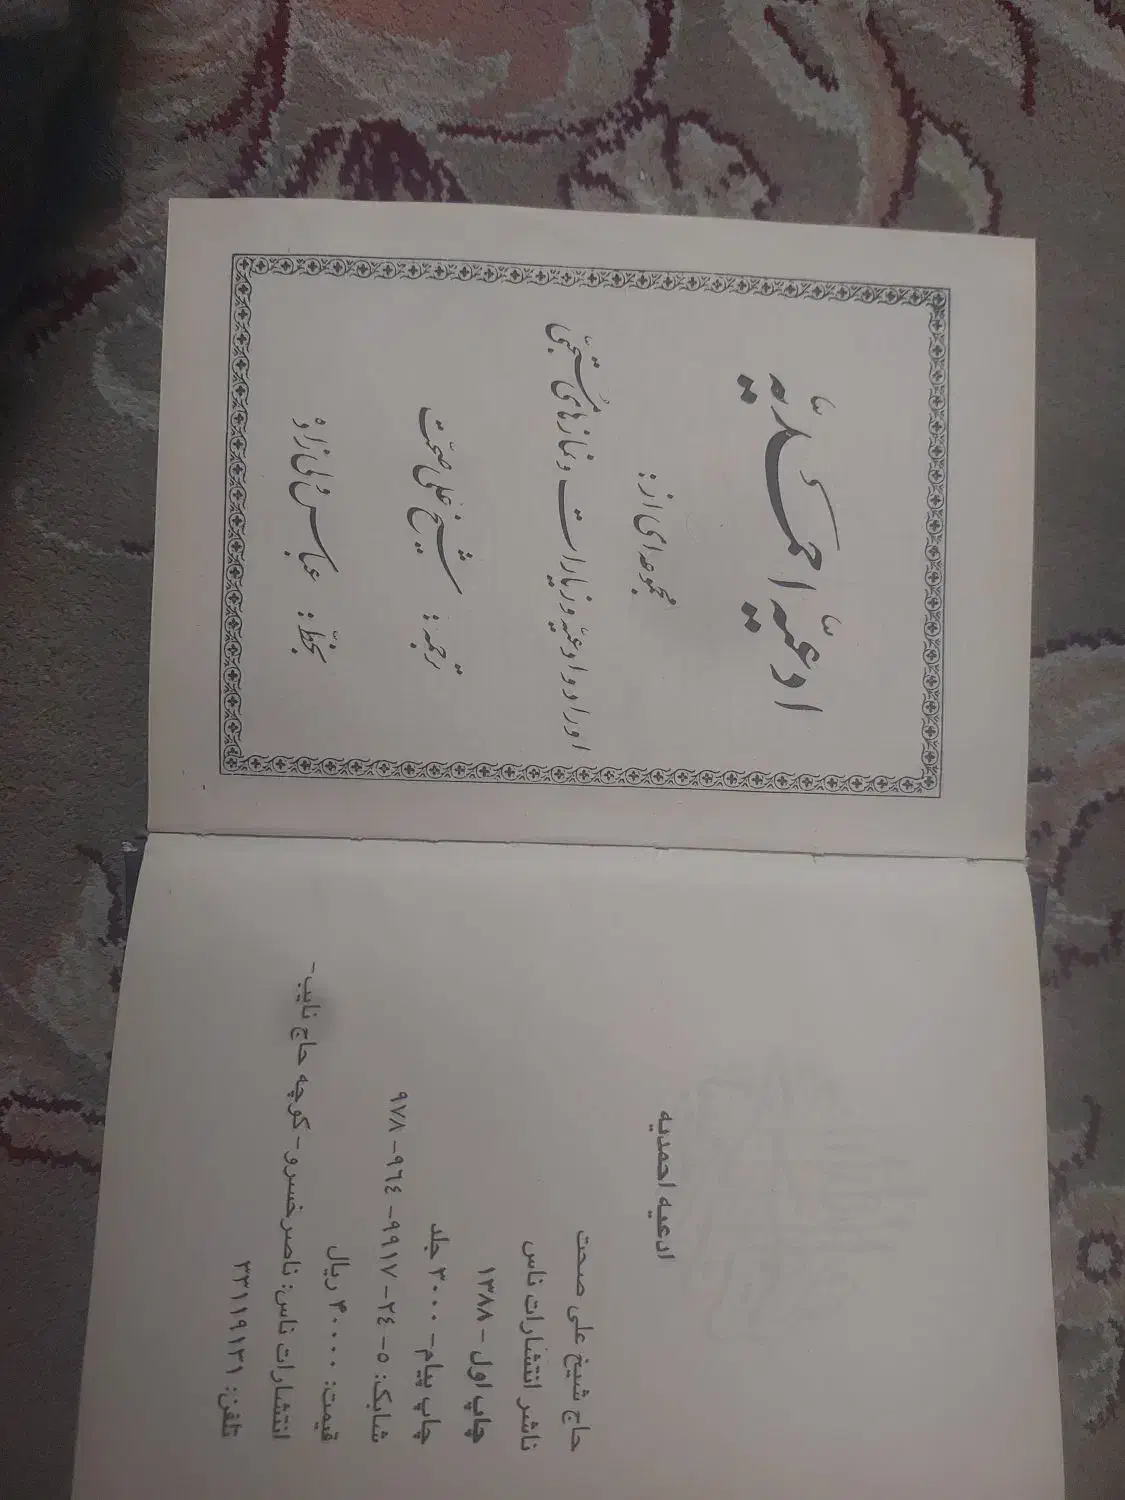 ادعیّه احمدیّه
مجموعه‌ای از:
اوراد و ادعیّه و زیارات و نمازهای مستحبّی
ترجمه: شیخ علی صحّت
بخطّ: عباس ولی زاده
ادعیه احمدیه
حاج شیخ علی صحت
ناشر انتشارات ناس
چاپ اول - ۱۳۸۸
چاپ پیام - ۳۰۰۰ جلد
شابک: ۵-۲۴-۹۹۱۷-۹۶۴-۹۷۸
قیمت: ۴۰۰۰۰ ریال
انتشارات ناس: ناصرخسرو - کوچه حاج نایب-
تلفن: ۳۳۱۱۹۱۳۱